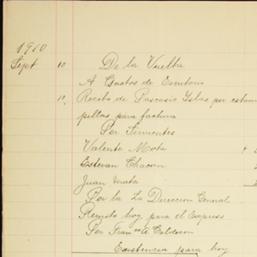 1910
Sept 10 De la Vuelta
A Gastos de Escritorio
" Recibo de Pascasio Islas por estam
pillas para factura
Por Sirvientes
Valente Mota
Estevan Chacon
Juan
Por la La Direccion General
Remito hoy para el Express
Por Fran.co A. Calderon
Existencia para hoy